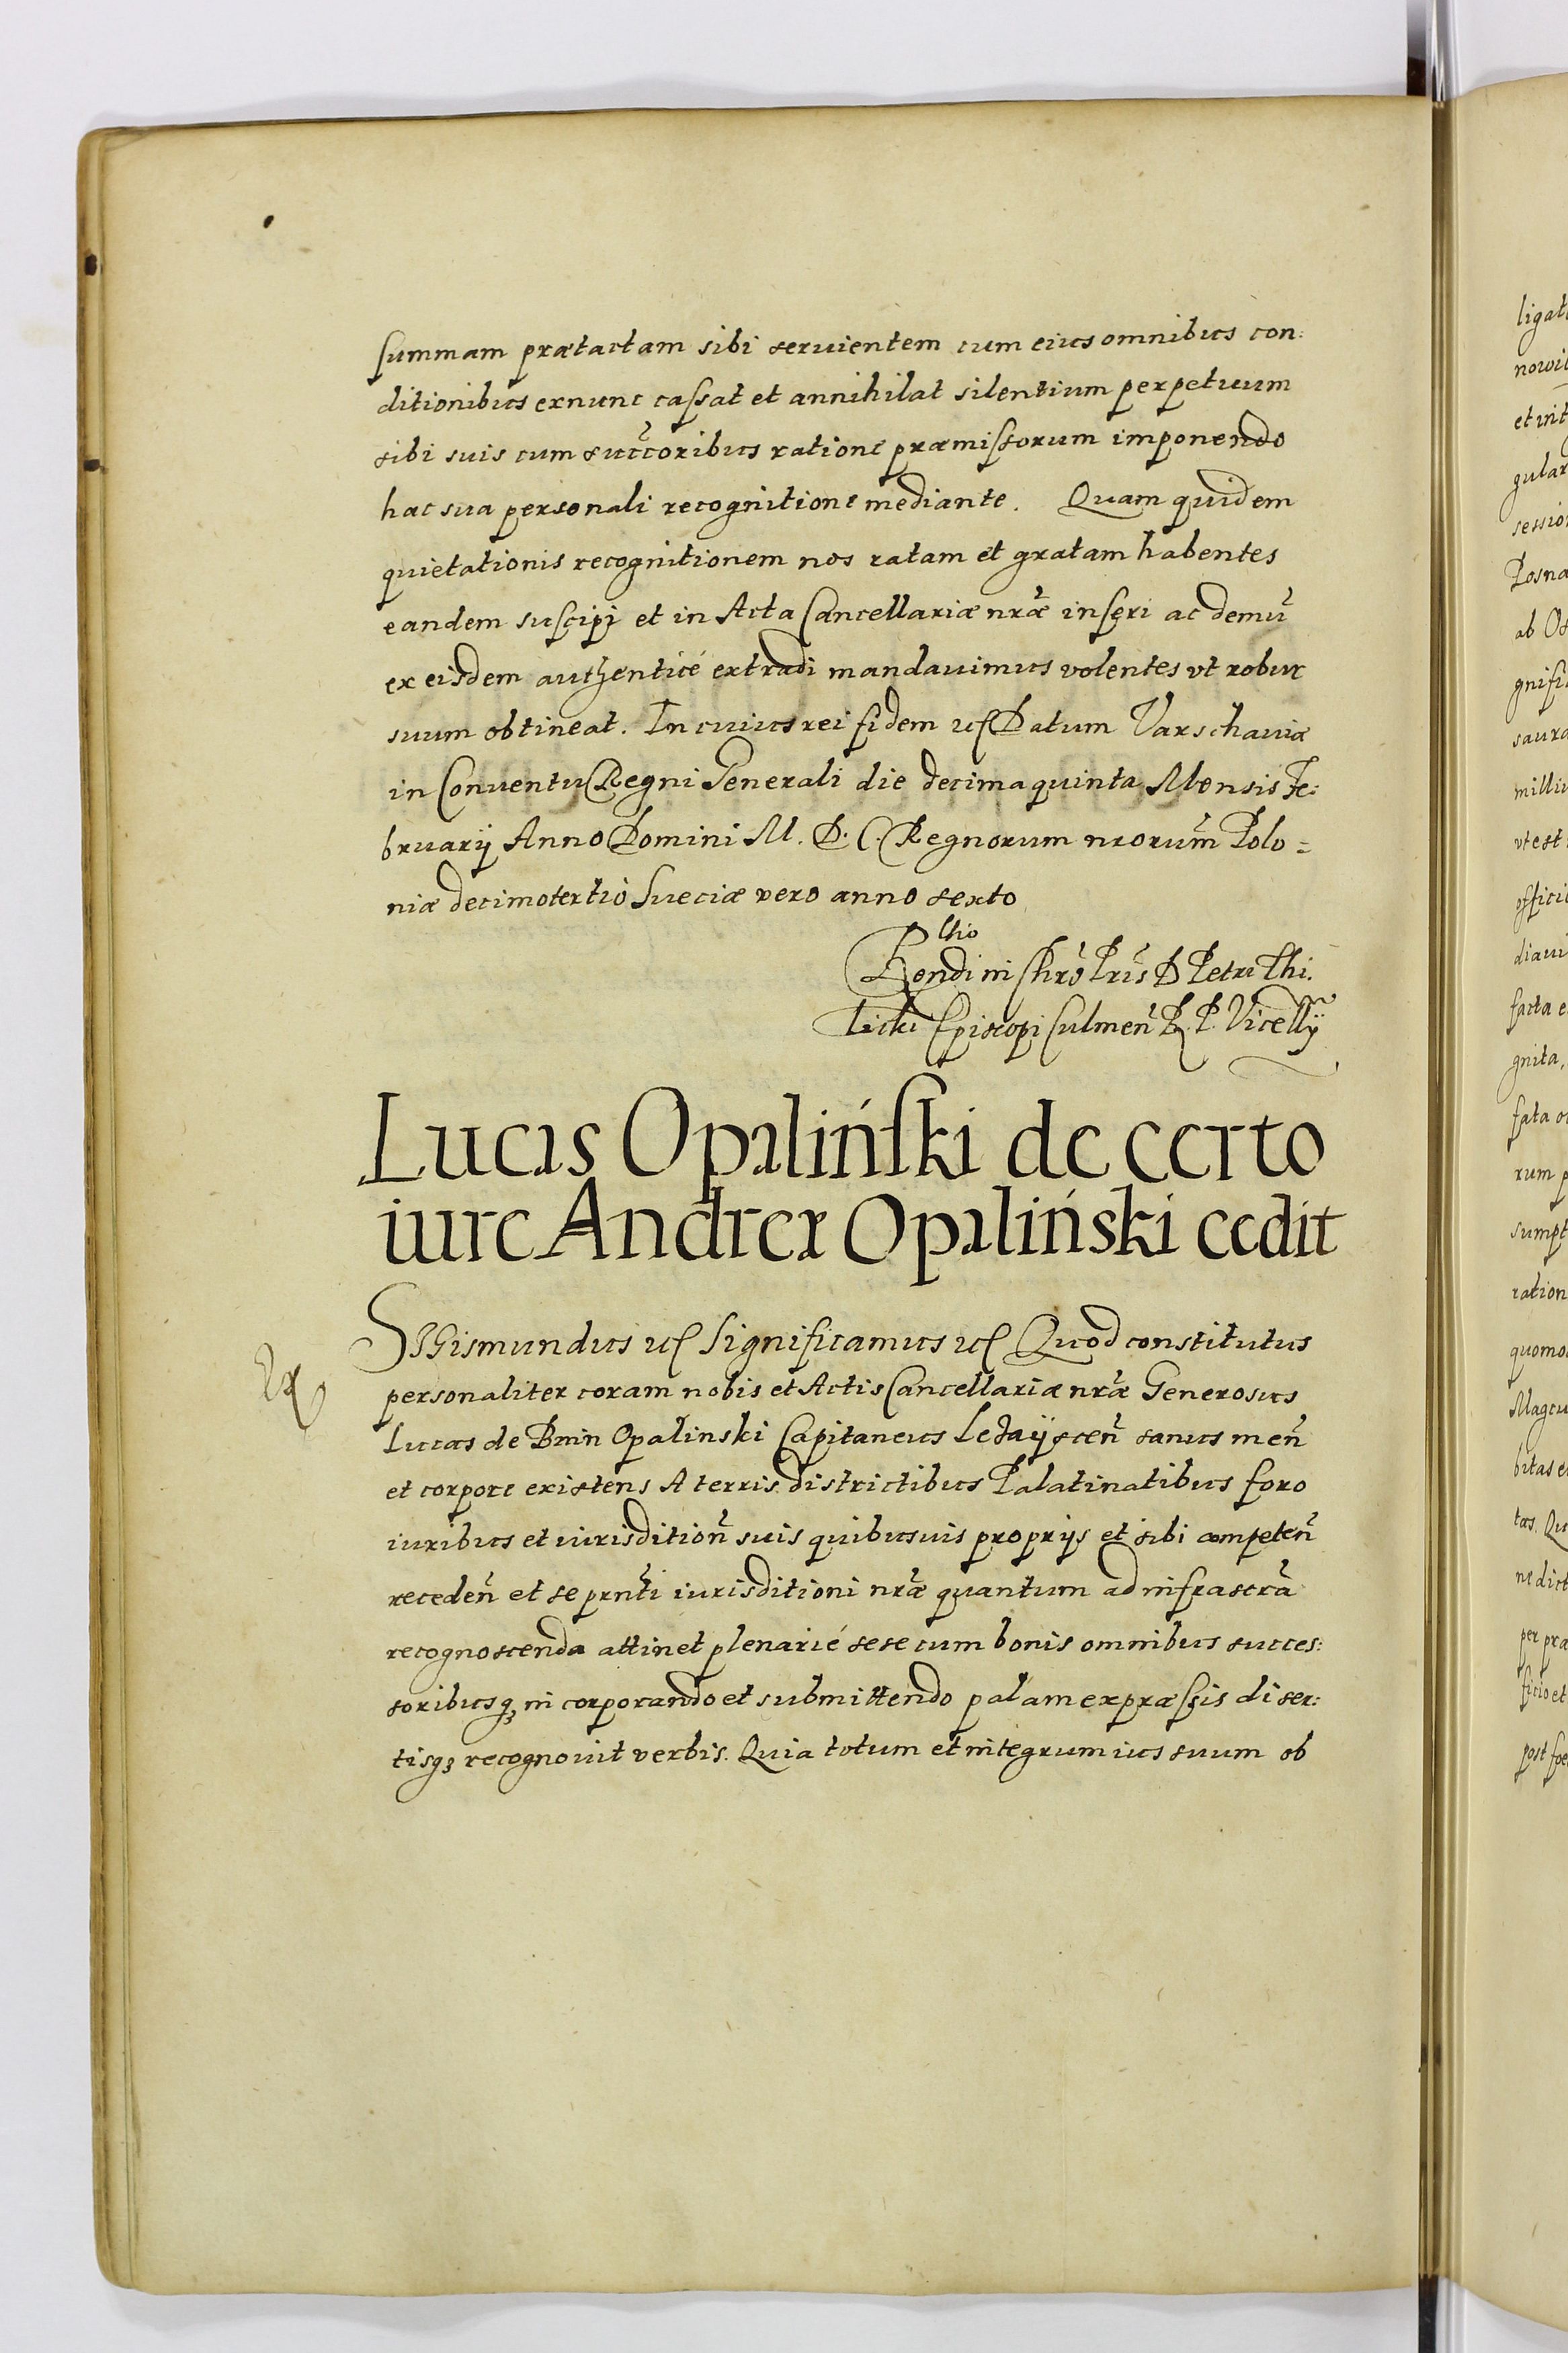 summam prætactam sibi seruientem cum eius omnibus con:
ditionibus exnunc cassat et annihilat silentium perpetuum
sibi suis cum succ̃oribus ratione præmissorum imponendo
hac sua personali recognitione mediante. Quam quidem
quietationis recognitionem nos ratam et gratam habentes
eandem suscipi et in Acta Cancellariæ nr̃æ inseri ac demũ
ex eisdem authenticé extradi mandauimus volentes vt robur
suum obtineat. In cuius rei fidem etc Datum Varschauiæ
in Conuentu Regni Generali die decima quinta Mensis Fe:
bruarij Anno Domini M. D. C. Regnorum nrorum̃ Polo=
niæ decimotertio Sueciæ vero anno sexto
R̃ndi in Chrõ Pr̃is D Petri Thi.
licki Episcopi Culmeñ R. P. Vicecllrij
Lucas Opaliński de certo
iure Andreæ Opaliński cedit
SIGismundus etc Significamus etc Quod constitutus
personaliter coram nobis et Actis Cancellariæ nr̃æ Generosus
Lucas de Bnin Opalinski Capitaneus Leżaijsceñ sanus meñ
et corpore existens A terris districtibus Palatinatibus foro
iuribus et iurisditioñ suis quibusuis proprijs et sibi competeñ
recedeñ et se prnt̃i iurisditioni nr̃æ quantum ad infrascrã
recognoscenda attinet plenarié sese cum bonis omnibus succes:
soribusqꝫ incorporando et submittendo palam expræssis diser:
tisqꝫ recognouit verbis. Quia totum et integrum ius suum ob